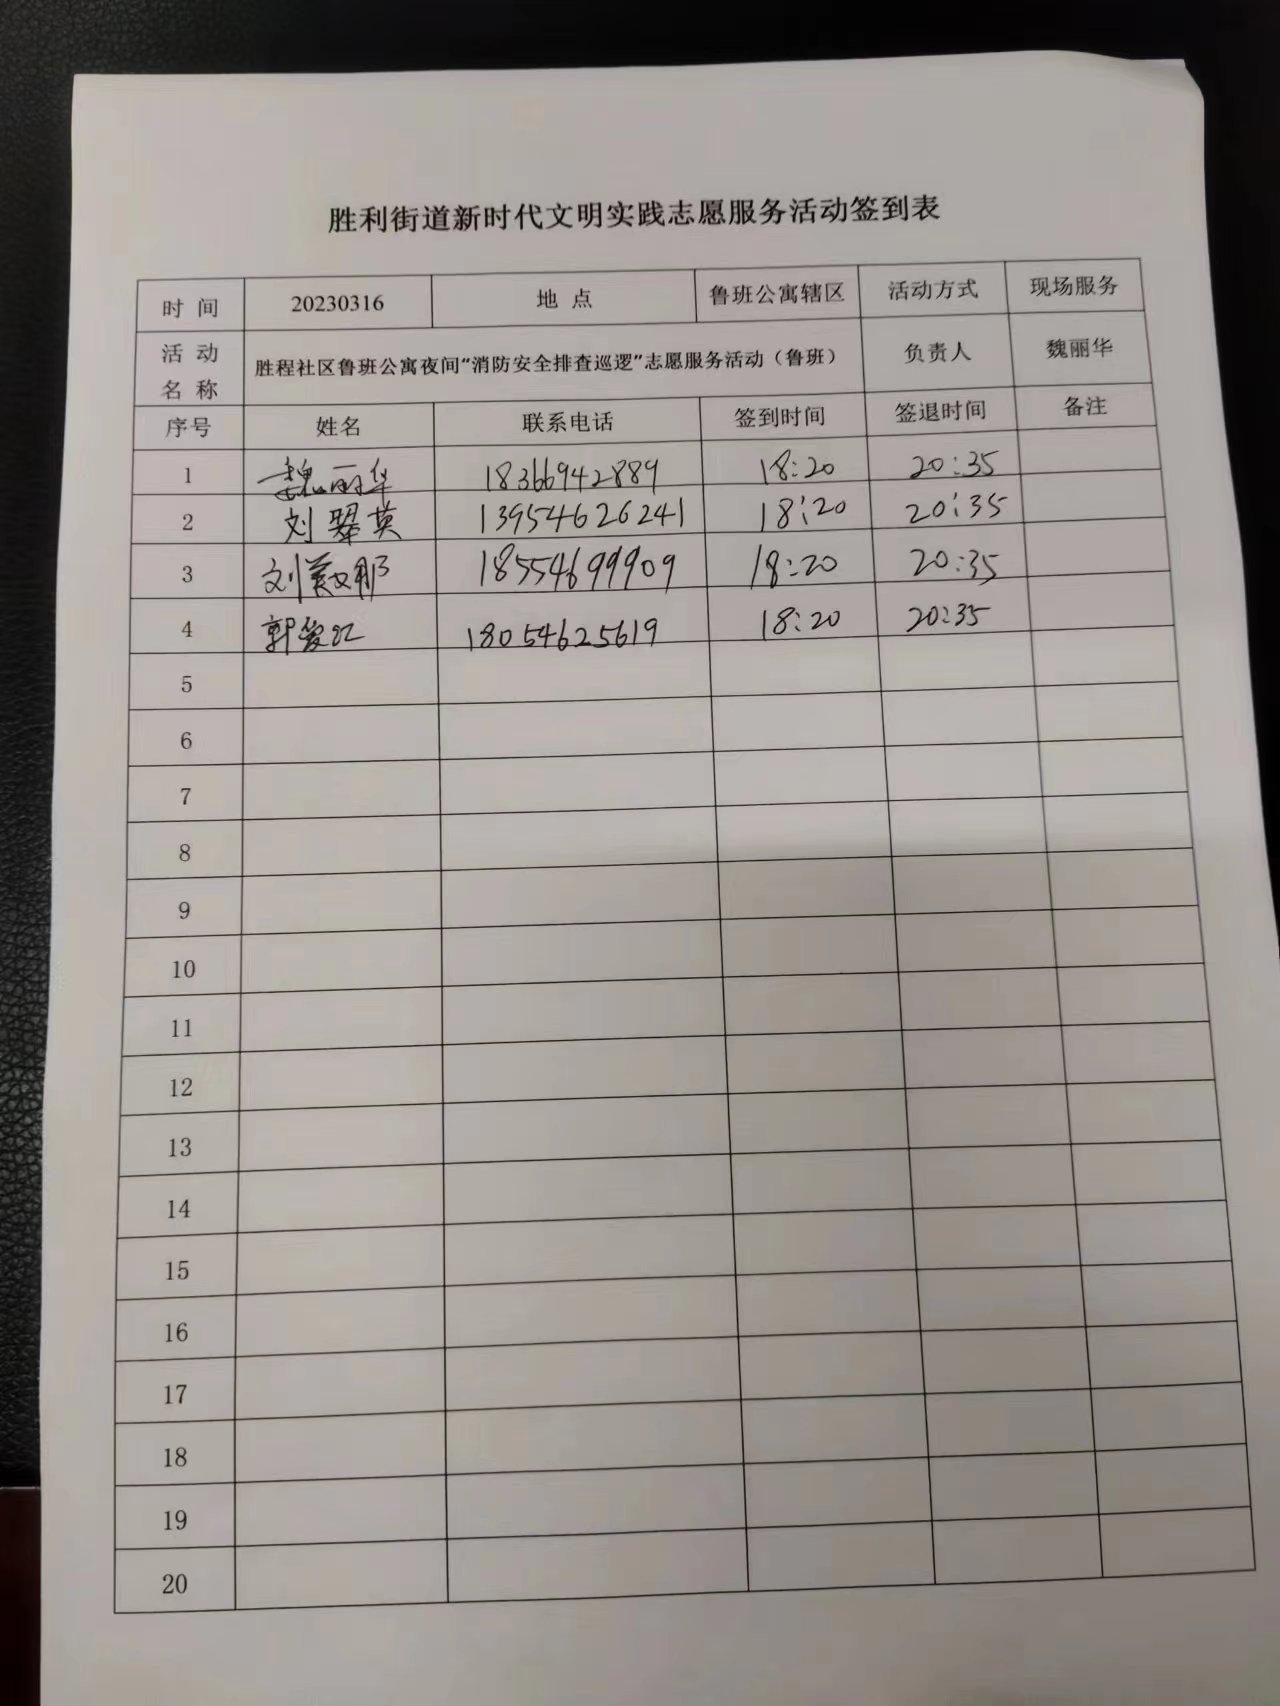 胜利街道新时代文明实践志愿服务活动签到表
时 间 20230316 地 点 鲁班公寓辖区 活动方式 现场服务
活 动 名 称 胜程社区鲁班公寓夜间“消防安全排查巡逻”志愿服务活动（鲁班） 负责人 魏丽华
序号 姓名 联系电话 签到时间 签退时间 备注
1 魏丽华 18366942889 18:20 20:35
2 刘翠英 13954626241 18:20 20:35
3 刘 娜 18554699909 18:20 20:35
4 郭爱红 18054625619 18:20 20:35
5
6
7
8
9
10
11
12
13
14
15
16
17
18
19
20